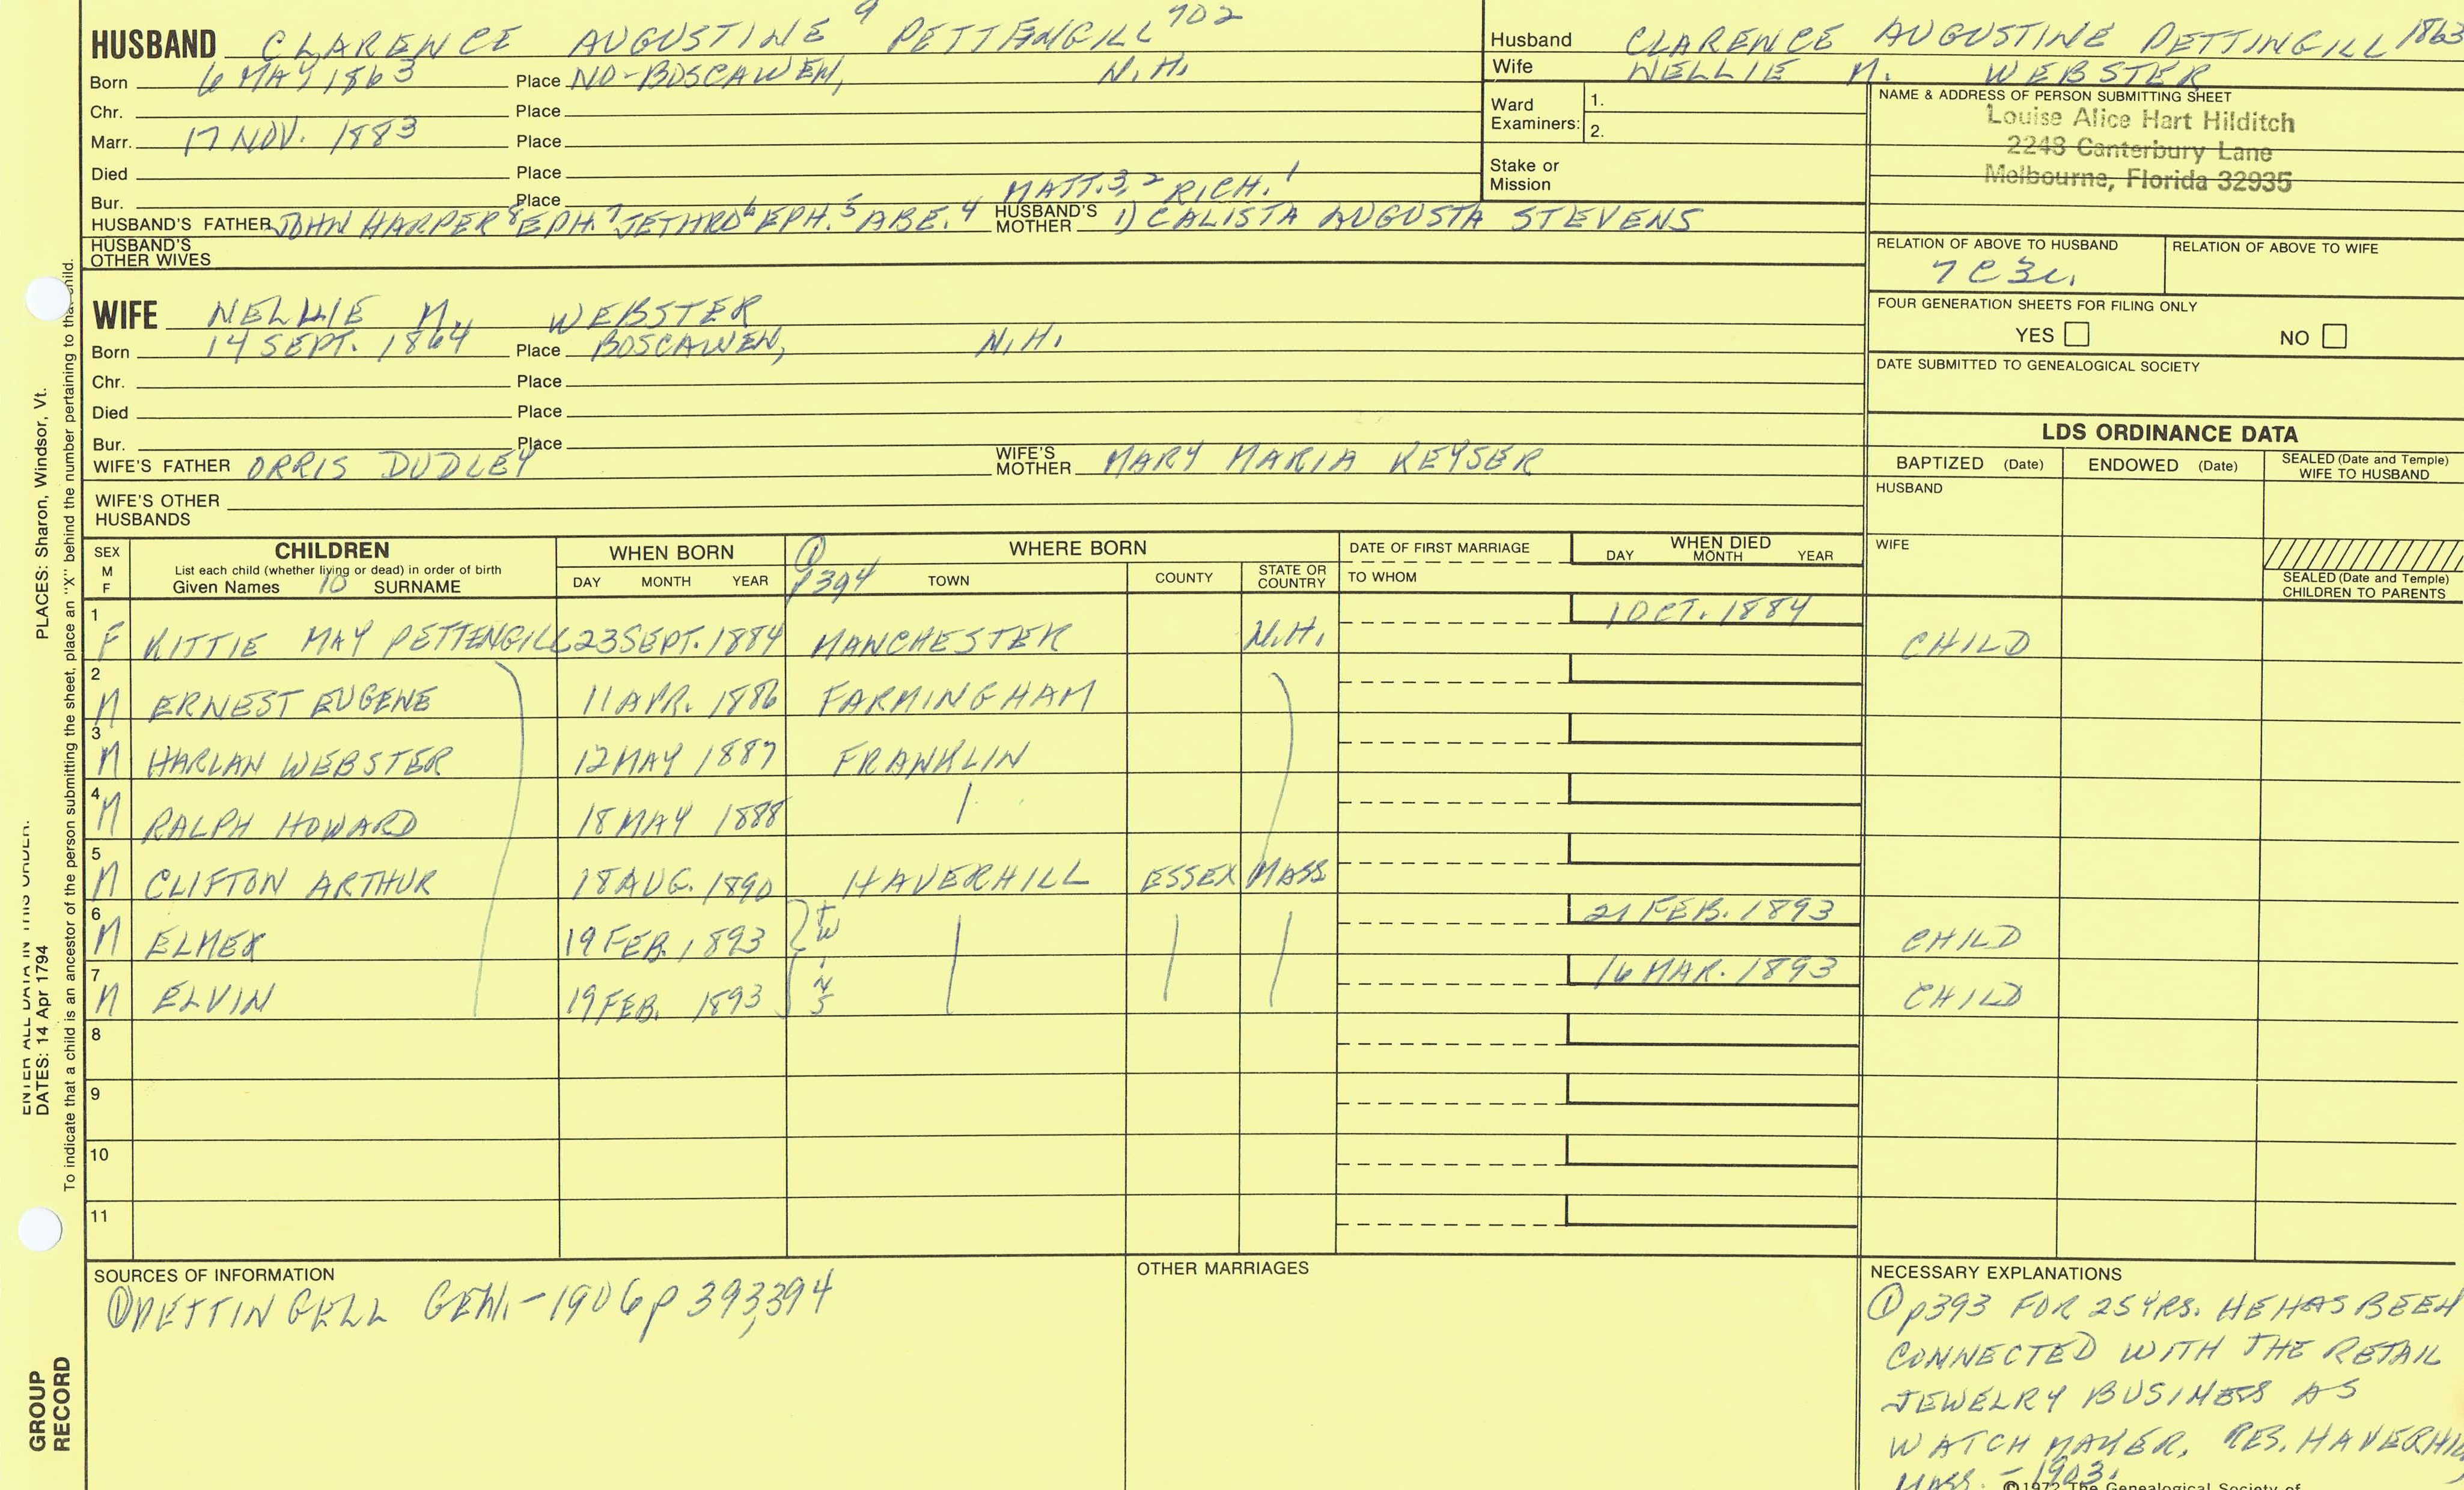 HUSBAND CLARENCE AUGUSTINE 9 PETTENGILL 702
Born 6 MAY 1863 Place NO-BOSCAWEN, N.H.
Chr. Place
Marr. 17 NOV. 1883 Place
Died Place
Bur. Place MATT.3, 2 RICH. 1
HUSBAND'S FATHER JOHN HARPER 8 EPH. 7 JETHRO 6 EPH. 5 ABE. 4 HUSBAND'S MOTHER 1) CALISTA AUGUSTA STEVENS
HUSBAND'S OTHER WIVES
WIFE NELLIE M. WEBSTER
Born 14 SEPT. 1864 Place BOSCAWEN, N.H.
Chr. Place
Died Place
Bur. Place
WIFE'S FATHER ORRIS DUDLEY WIFE'S MOTHER MARY MARIA KEYSER
WIFE'S OTHER HUSBANDS
Husband CLARENCE AUGUSTINE PETTINGILL 1863
Wife NELLIE M. WEBSTER
Ward Examiners: 1.
2.
Stake or Mission
NAME & ADDRESS OF PERSON SUBMITTING SHEET
Louise Alice Hart Hilditch
2243 Canterbury Lane
Melbourne, Florida 32935
RELATION OF ABOVE TO HUSBAND RELATION OF ABOVE TO WIFE
7C3r.
FOUR GENERATION SHEETS FOR FILING ONLY
YES NO
DATE SUBMITTED TO GENEALOGICAL SOCIETY
LDS ORDINANCE DATA
BAPTIZED (Date) ENDOWED (Date) SEALED (Date and Temple) WIFE TO HUSBAND
HUSBAND
WIFE
SEALED (Date and Temple) CHILDREN TO PARENTS
SEX M F CHILDREN WHEN BORN 1 WHERE BORN DATE OF FIRST MARRIAGE WHEN DIED
List each child (whether living or dead) in order of birth
Given Names 10 SURNAME DAY MONTH YEAR p394 TOWN COUNTY STATE OR COUNTRY TO WHOM DAY MONTH YEAR
1 F KITTIE MAY PETTENGILL 23 SEPT. 1884 MANCHESTER N.H. 1 OCT. 1884 CHILD
2 M ERNEST EUGENE 11 APR. 1886 FARMINGHAM
3 M HARLAN WEBSTER 12 MAY 1887 FRANKLIN
4 M RALPH HOWARD 18 MAY 1888
5 M CLIFTON ARTHUR 18 AUG. 1890 HAVERHILL ESSEX MASS
6 M ELMER 19 FEB. 1893 TWINS 21 FEB. 1893 CHILD
7 M ELVIN 19 FEB. 1893 16 MAR. 1893 CHILD
8
9
10
11
SOURCES OF INFORMATION
① PETTINGELL GEN.-1906 p 393,394
OTHER MARRIAGES
NECESSARY EXPLANATIONS
① p393 FOR 25 YRS. HE HAS BEEN
CONNECTED WITH THE RETAIL
JEWELRY BUSINESS AS
WATCH MAKER. RES. HAVERHILL
MASS. - 1903.
©1972 The Genealogical Society of
ENTER ALL DATA IN THIS ORDER:
DATES: 14 Apr 1794 PLACES: Sharon, Windsor, Vt.
To indicate that a child is an ancestor of the person submitting the sheet, place an "X" behind the number pertaining to that child.
GROUP RECORD